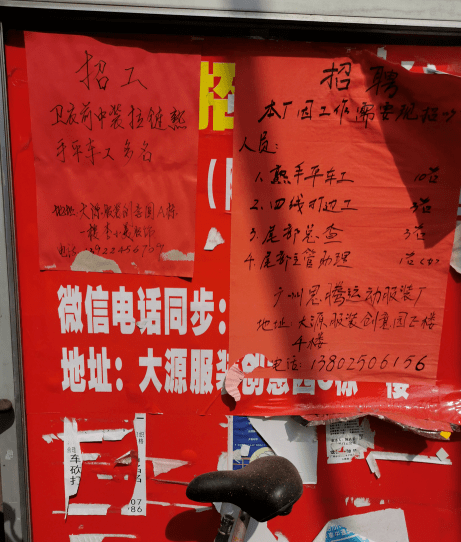 招工
卫衣前中装拉链熟
手平车工多名
地址:大源服装创意园八栋
一楼
电话:13922456709
招聘
本厂因工作需要现招以
人员:
1.熟手平车工 10名
2.四线打边工 3名
3.尾部总查 3名
4.尾部主管助理 1名(女)
广州思腾运动服装厂
地址:大源服装创意园五楼
4楼
电话:13802506156
招
微信电话同步:
地址:大源服装创意园 栋 楼
车砍打
07
86